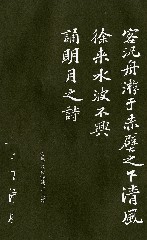 客泛舟游于赤壁之下清風
徐来水波不興
誦明月之詩